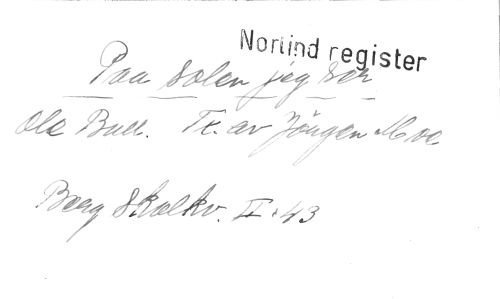 Norlind register
Paa solen jeg ser
Ole Bull. Tx. av Jörgen Moe.
Berg Skolkv. II:43